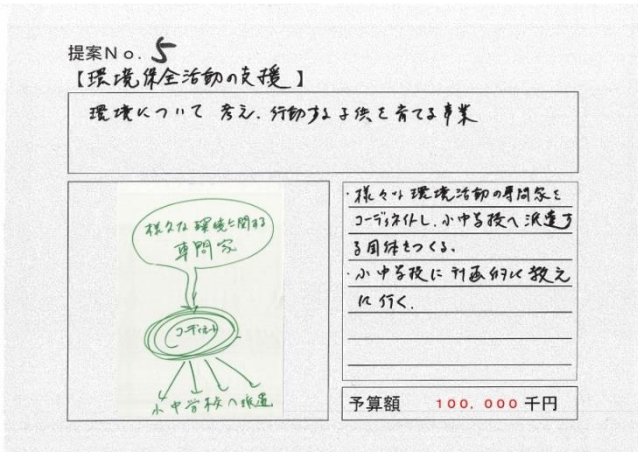 提案No. 5
【環境保全活動の支援】
環境について 考え、行動する子供を育てる事業
様々な環境に関する
専門家
コーディネイト
小中学校へ派遣
・様々な環境活動の専門家を
コーディネイトし、小中学校へ派遣す
る団体をつくる。
・小中学校に計画的に教え
に行く。
予算額 100,000千円